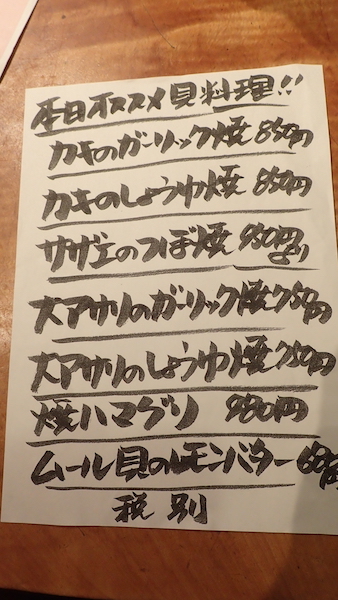 本日オススメ貝料理!!
カキのガーリック焼 850円
カキのしょうゆ焼 850円
サザエのつぼ焼 950円より
大アサリのガーリック焼 750円
大アサリのしょうゆ焼 750円
焼ハマグリ 980円
ムール貝のレモンバター 680円
税別